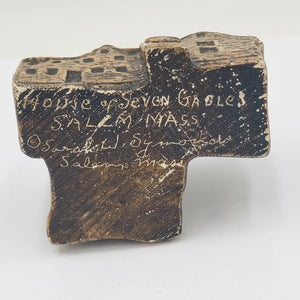 HOUSE of SEVEN GABLES
SALEM MASS
© Sarah W. Symonds
Salem Mass